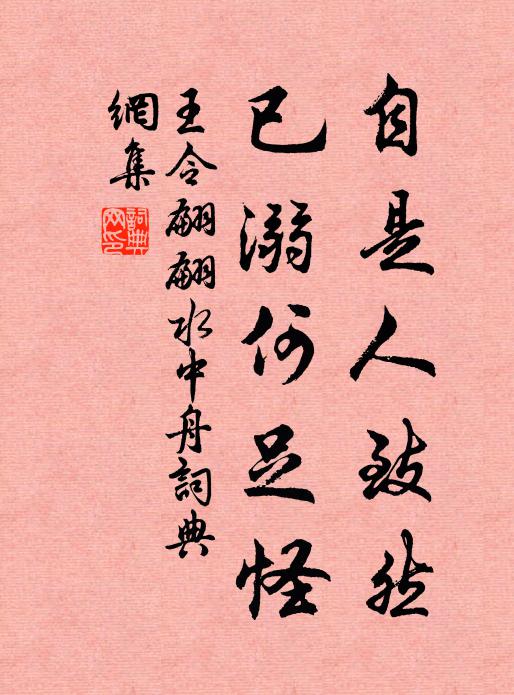 自是人致然
已溺何足怪
王令翩翩水中舟詞典
網集
詞典
网印